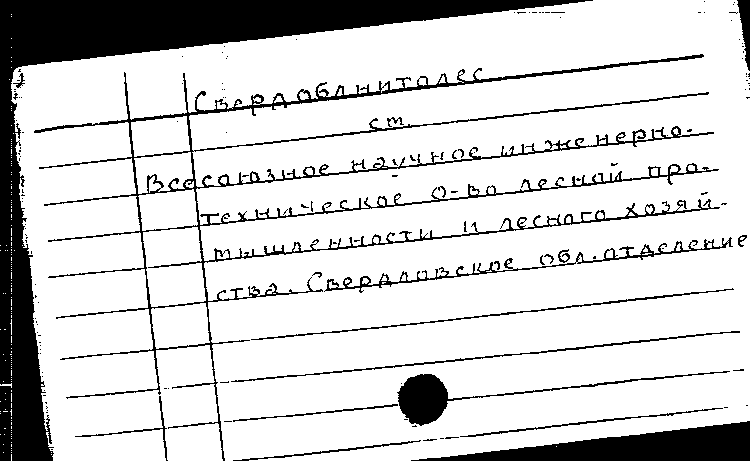 Свердоблнитолес
ст.
Всесоюзное научное инженерно-
техническое о-во лесной про-
мышленности и лесного хозяй-
ства. Свердловское обл. отделение